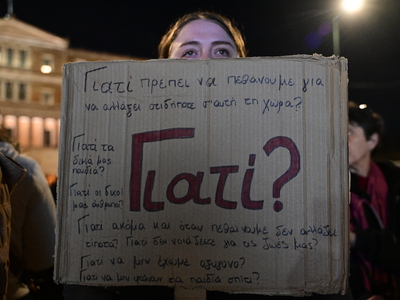 Γιατί πρέπει να πεθάνουμε για
να αλλάξει οτιδήποτε σ'αυτή τη χώρα?
Γιατί τα
δικά μας
παιδιά?
Γιατί οι δικοί
μας άνθρωποι?
Γιατί?
Γιατί ακόμα και όταν πεθαίνουμε δεν αλλάζει
τίποτα? Γιατί δεν νοιάζεστε για τις ζωές μας?
Γιατί να μην έχουμε οξυγόνο?
Γιατί να μην φτάνουν τα παιδιά σπίτι?